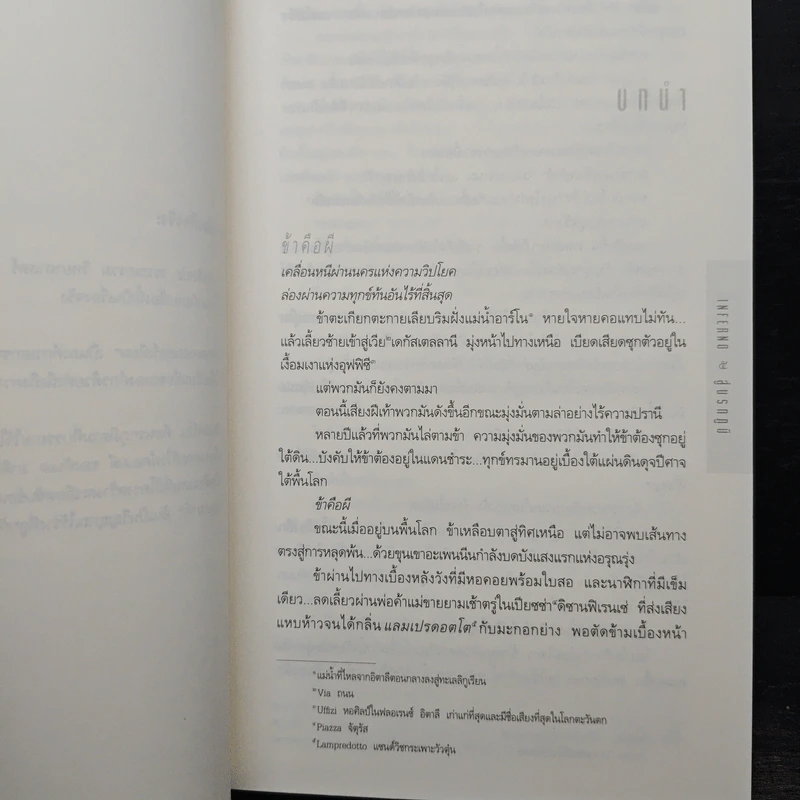 บทนำ
ข้าคือผี
เคลื่อนหนีผ่านนครแห่งความวิปโยค
ล่องผ่านความทุกข์ท้นอันไร้ที่สิ้นสุด
ข้าตะเกียกตะกายเลียบริมฝั่งแม่น้ำอาร์โน หายใจหายคอแทบไม่ทัน...
แล้วเลี้ยวซ้ายเข้าสู่เวียเดกัสเตลลานี มุ่งหน้าไปทางเหนือ เบียดเสียดซุกตัวอยู่ใน
เงื้อมเงาแห่งอุฟฟิซี
แต่พวกมันก็ยังคงตามมา
ตอนนี้เสียงฝีเท้าพวกมันดังขึ้นอีกขณะมุ่งมั่นตามล่าอย่างไร้ความปรานี
หลายปีแล้วที่พวกมันไล่ตามข้า ความมุ่งมั่นของพวกมันทำให้ข้าต้องซุกอยู่
ใต้ดิน...บังคับให้ข้าต้องอยู่ในแดนชำระ...ทุกข์ทรมานอยู่เบื้องใต้แผ่นดินดุจปีศาจ
ใต้พื้นโลก
ข้าคือผี
ขณะนี้เมื่ออยู่บนพื้นโลก ข้าเหลือบตาสู่ทิศเหนือ แต่ไม่อาจพบเส้นทาง
ตรงสู่การหลุดพ้น...ด้วยขุนเขาอะเพนนีนกำลังบดบังแสงแรกแห่งอรุณรุ่ง
ข้าผ่านไปทางเบื้องหลังวังที่มีหอคอยพร้อมใบสอ และนาฬิกาที่มีเข็ม
เดียว...ลดเลี้ยวผ่านพ่อค้าแม่ขายยามเช้าตรู่ในเปียซซ่าดิซานฟิเรนเซ่ ที่ส่งเสียง
แหบห้าวจนได้กลิ่น แลมเปรดอตโต กับมะกอกย่าง พอตัดข้ามเบื้องหน้า
แม่น้ำที่ไหลจากอิตาลีตอนกลางลงสู่ทะเลลิกูเรียน
Via ถนน
Uffizi หอศิลป์ในฟลอเรนซ์ อิตาลี เก่าแก่ที่สุดและมีชื่อเสียงที่สุดในโลกตะวันตก
Piazza จัตุรัส
Lampredotto แซนด์วิชกระเพาะวัวตุ๋น
INFERNO สู่นรกภูมิ